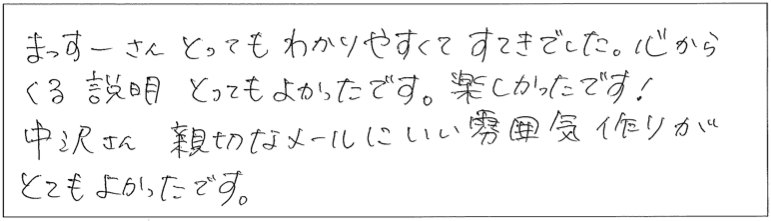 まっすーさん とってもわかりやすくてすてきでした。心から
くる説明 とってもよかったです。楽しかったです!
中沢さん 親切なメールにいい雰囲気作りが
とてもよかったです。